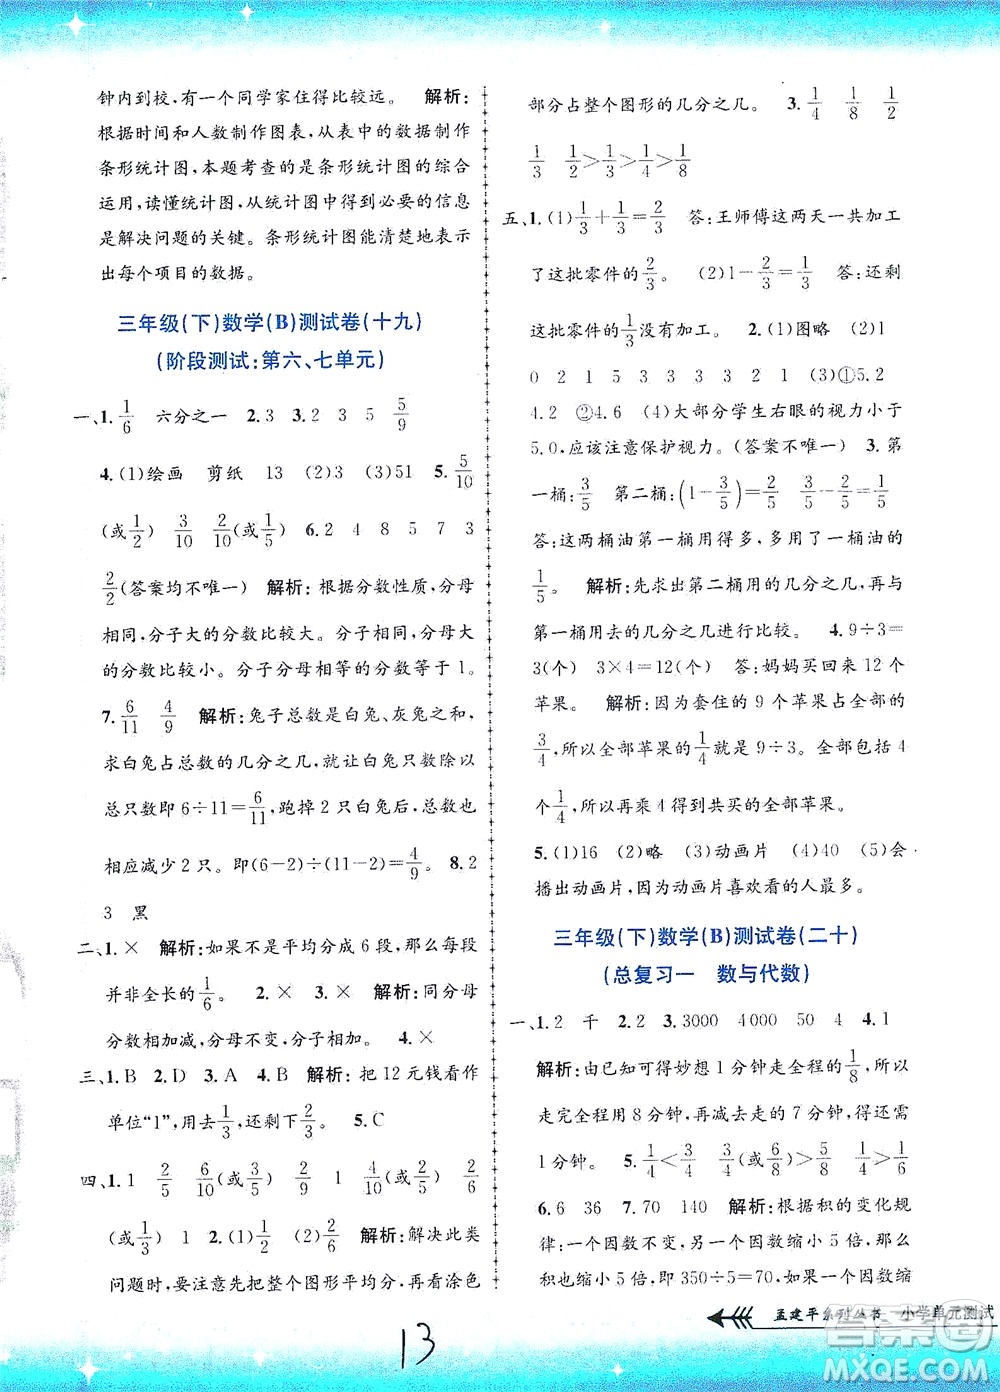 钟内到校,有一个同学家住得比较远。 解析:
根据时间和人数制作图表,从表中的数据制作
条形统计图,本题考查的是条形统计图的综合
运用,读懂统计图,从统计图中得到必要的信息
是解决问题的关键。条形统计图能清楚地表示
出每个项目的数据。
三年级(下)数学(B)测试卷(十九)
(阶段测试:第六、七单元)
一、1. 1/6 六分之一 2.3 3.2 3 5 5/9
4.(1)绘画 剪纸 13 (2)3 (3)51 5. 5/10
(或1/2) 3/10 2/10(或1/5) 6.2 4 8 5 7 3
2/2(答案均不唯一) 解析:根据分数性质,分母
相同,分子大的分数比较大。分子相同,分母大
的分数比较小。分子分母相等的分数等于1。
7. 6/11 4/9 解析:兔子总数是白兔、灰兔之和,
求白兔占总数的几分之几,就是用白兔只数除以
总只数即6÷11=6/11,跑掉2只白兔后,总数也
相应减少2只。即(6-2)÷(11-2)=4/9。 8.2
3 黑
二、1.× 解析:如果不是平均分成6段,那么每段
并非全长的1/6。 2.× 3.× 解析:同分母
分数相加减,分母不变,分子相加。 4.×
三、1.B 2.D 3.A 4.B 解析:把12元钱看作
单位“1”,用去1/3,还剩下2/3。 5.C
四、1.1 2/5 6/10(或3/5) 2/9 2. 1/4 4/6(或2/3) 2/6
(或1/3) 1 2.(1)2/6(或1/3) (2)2/6 解析:解决此类
问题时,要注意先把整个图形平均分,再看涂色
部分占整个图形的几分之几。 3. 1/4 1/8 1/2
1/3 1/2>1/3>1/4>1/8
五、1.(1)1/3+1/3=2/3 答:王师傅这两天一共加工
了这批零件的2/3。 (2)1-2/3=1/3 答:还剩
这批零件的1/3没有加工。 2.(1)图略 (2)1
0 2 1 3 3 3 3 2 1 (3)①5.2
4.2 ②4.6 (4)大部分学生右眼的视力小于
5.0,应该注意保护视力。(答案不唯一) 3.第
一桶:3/5 第二桶:(1-3/5)=2/5 3/5-2/5=1/5
答:这两桶油第一桶用得多,多用了一桶油的
1/5。 解析:先求出第二桶用的几分之几,再与
第一桶用去的几分之几进行比较。 4.9÷3=
3(个) 3×4=12(个) 答:妈妈买回来12个
苹果。 解析:因为套住的9个苹果占全部的
3/4,所以全部苹果的1/4就是9÷3。全部包括4
个1/4,所以再乘4得到共买的全部苹果。
5.(1)16 (2)略 (3)动画片 (4)40 (5)会
播出动画片,喜欢看的人最多。
三年级(下)数学(B)测试卷(二十)
(总复习一 数与代数)
一、1.2 千 2.2 3.3000 4000 50 4 4.1
解析:由已知可得妙想1分钟走全程的1/8,所以
走完全程用8分钟,再减去走的7分钟,还需要
1分钟。 5. 1/4<3/4 6/8>5/8 1/4>1/6
6.6 36 7.70 140 解析:根据积的变化规
律:一个因数不变,另一个因数缩小5倍,那么
积缩小5倍,即350÷5=70,如果一个因数缩
孟建平系列丛书 小学单元测试
13
答案圈
MXQE.COM